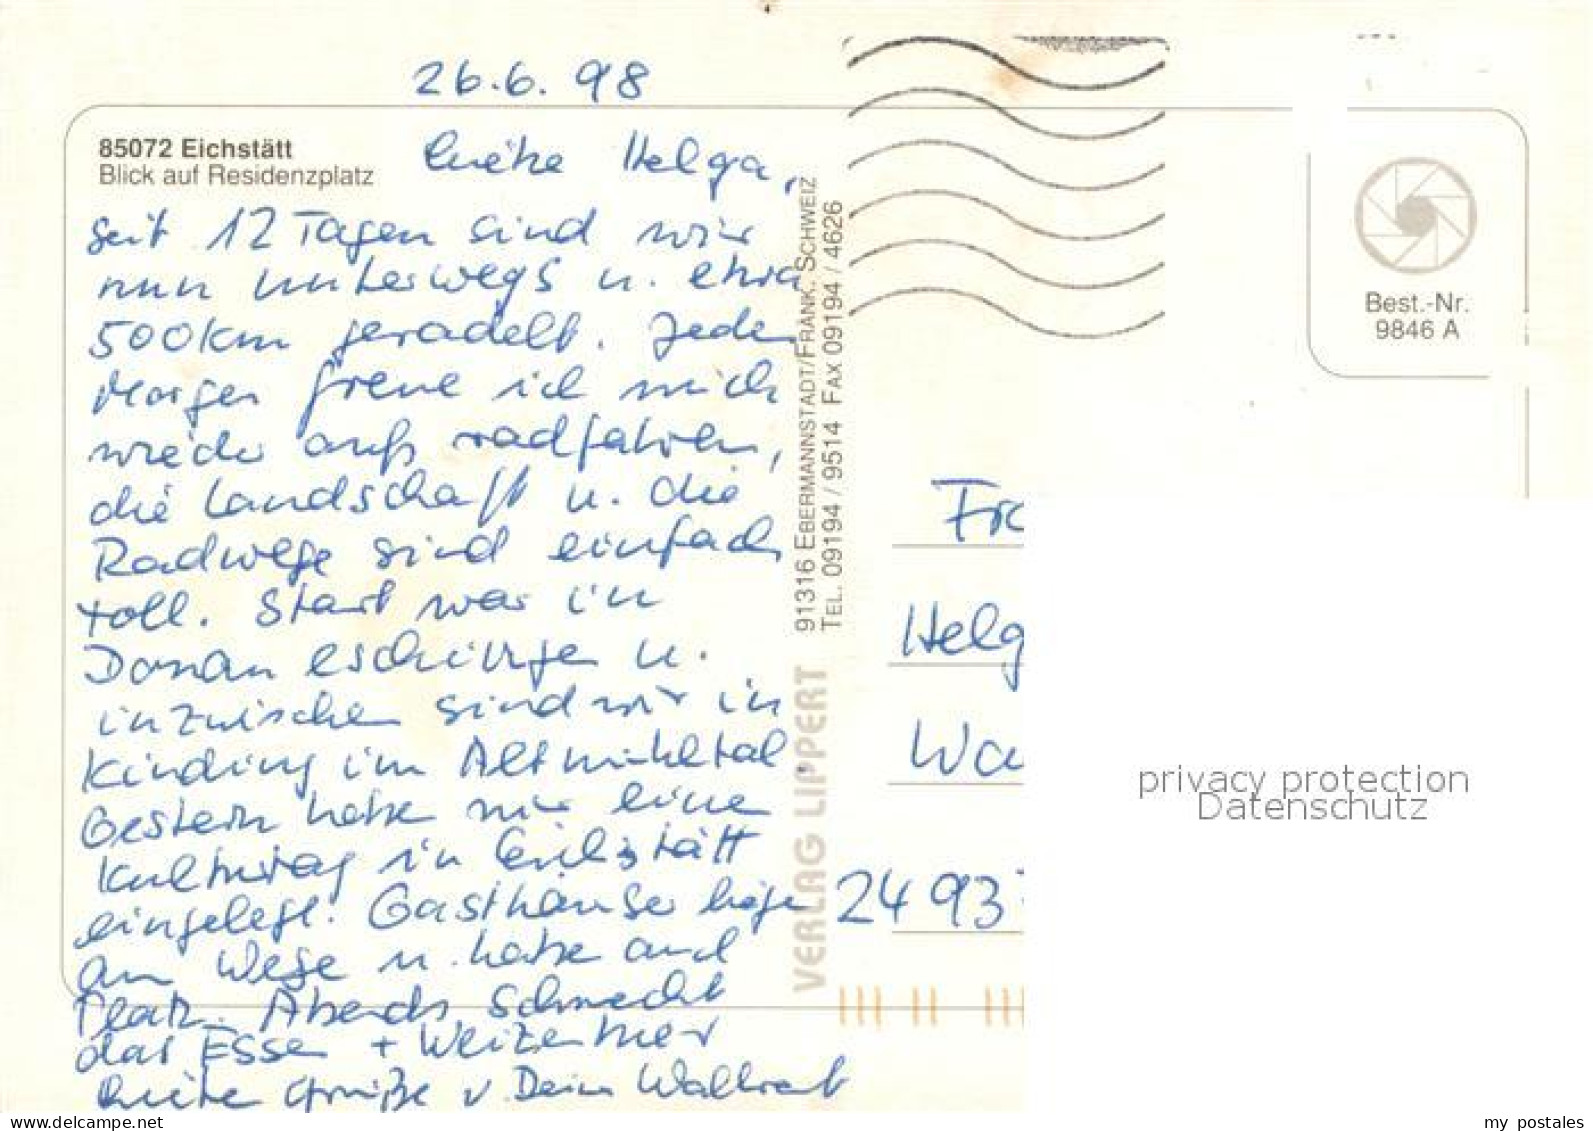 26.6.98
85072 Eichstätt
Blick auf Residenzplatz
Liebe Helga,
seit 12 Tagen sind wir
nun unterwegs u. etwa
500km geradelt. Jeden
Morgen freue ich mich
wieder aufs radfahren,
die Landschaft u. die
Radwege sind einfach
toll. Start war in
Donaueschingen u.
inzwischen sind wir in
Kinding im Altmühltal.
Gestern haben wir eine
Kulturtag in Eichstätt
eingelegt. Gasthäuser liegen
am Wege u. haben auch
Platz. Abends schmeckt
das Essen + Weizenbier
Liebe Grüße v. Dein
91316 EBERMANNSTADT/FRÄNK. SCHWEIZ
TEL. 09194 / 9514 FAX 09194 / 4626
VERLAG LIPPERT
Best.-Nr.
9846 A
Fra
Helg
Wa
2493
privacy protection
Datenschutz
my postales
www.delcampe.net